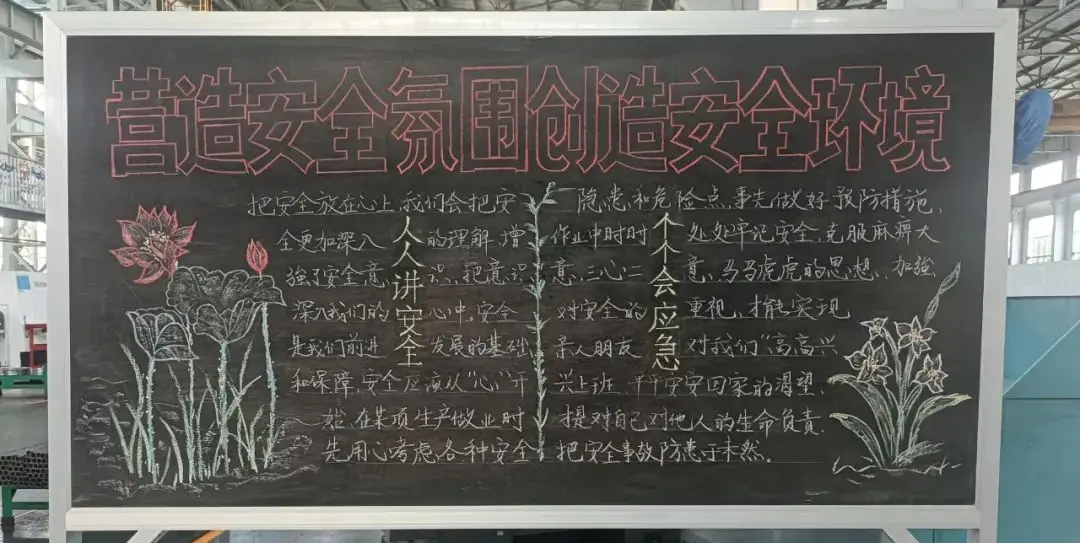 营造安全氛围创造安全环境
把安全放在心上,我们会把安
全更加深入的理解,增
強了安全意识,把意识
深入我们的心中,安全
是我们前进发展的基础
和保障,安全应该从“心”开
始,在某项生产做业时
先用心考虑各种安全
人人讲安全
隐患和危险点,事先做好预防措施,
作业中时时处处牢记安全,克服麻痹大
意,三心二意,马马虎虎的思想,加強
对安全的重视,才能实现
亲人朋友对我们“高高兴
兴上班,平平安安回家的渴望,
提对自己对他人的生命负责
把安全事故防患于未然。
个个会应急